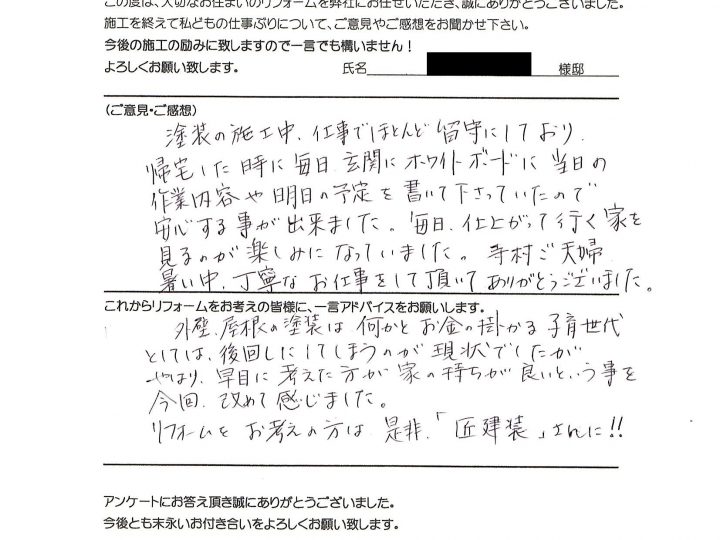 この度は、大切なお住まいのリフォームを弊社にお任せいただき、誠にありがとうございました。
施工を終えて私どもの仕事ぶりについて、ご意見やご感想をお聞かせ下さい。
今後の施工の励みに致しますので一言でも構いません！
よろしくお願い致します。 氏名 様邸
（ご意見・ご感想）
塗装の施工中、仕事でほとんど留守にしており、
帰宅した時に毎日玄関にホワイトボードに当日の
作業内容や明日の予定を書いて下さっていたので
安心する事が出来ました。毎日、仕上がって行く家を
見るのが楽しみになっていました。寺村ご夫婦
暑い中、丁寧なお仕事をして頂いてありがとうございました。
これからリフォームをお考えの皆様に、一言アドバイスをお願いします。
外壁、屋根の塗装は何かとお金の掛かる子育世代
としては、後回しにしてしまうのが現状でしたが
やはり、早目に考えた方が家の持ちが良いという事を
今回、改めて感じました。
リフォームをお考えの方は是非、「匠建装」さんに!!
アンケートにお答え頂き誠にありがとうございました。
今後とも末永いお付き合いをよろしくお願い致します。